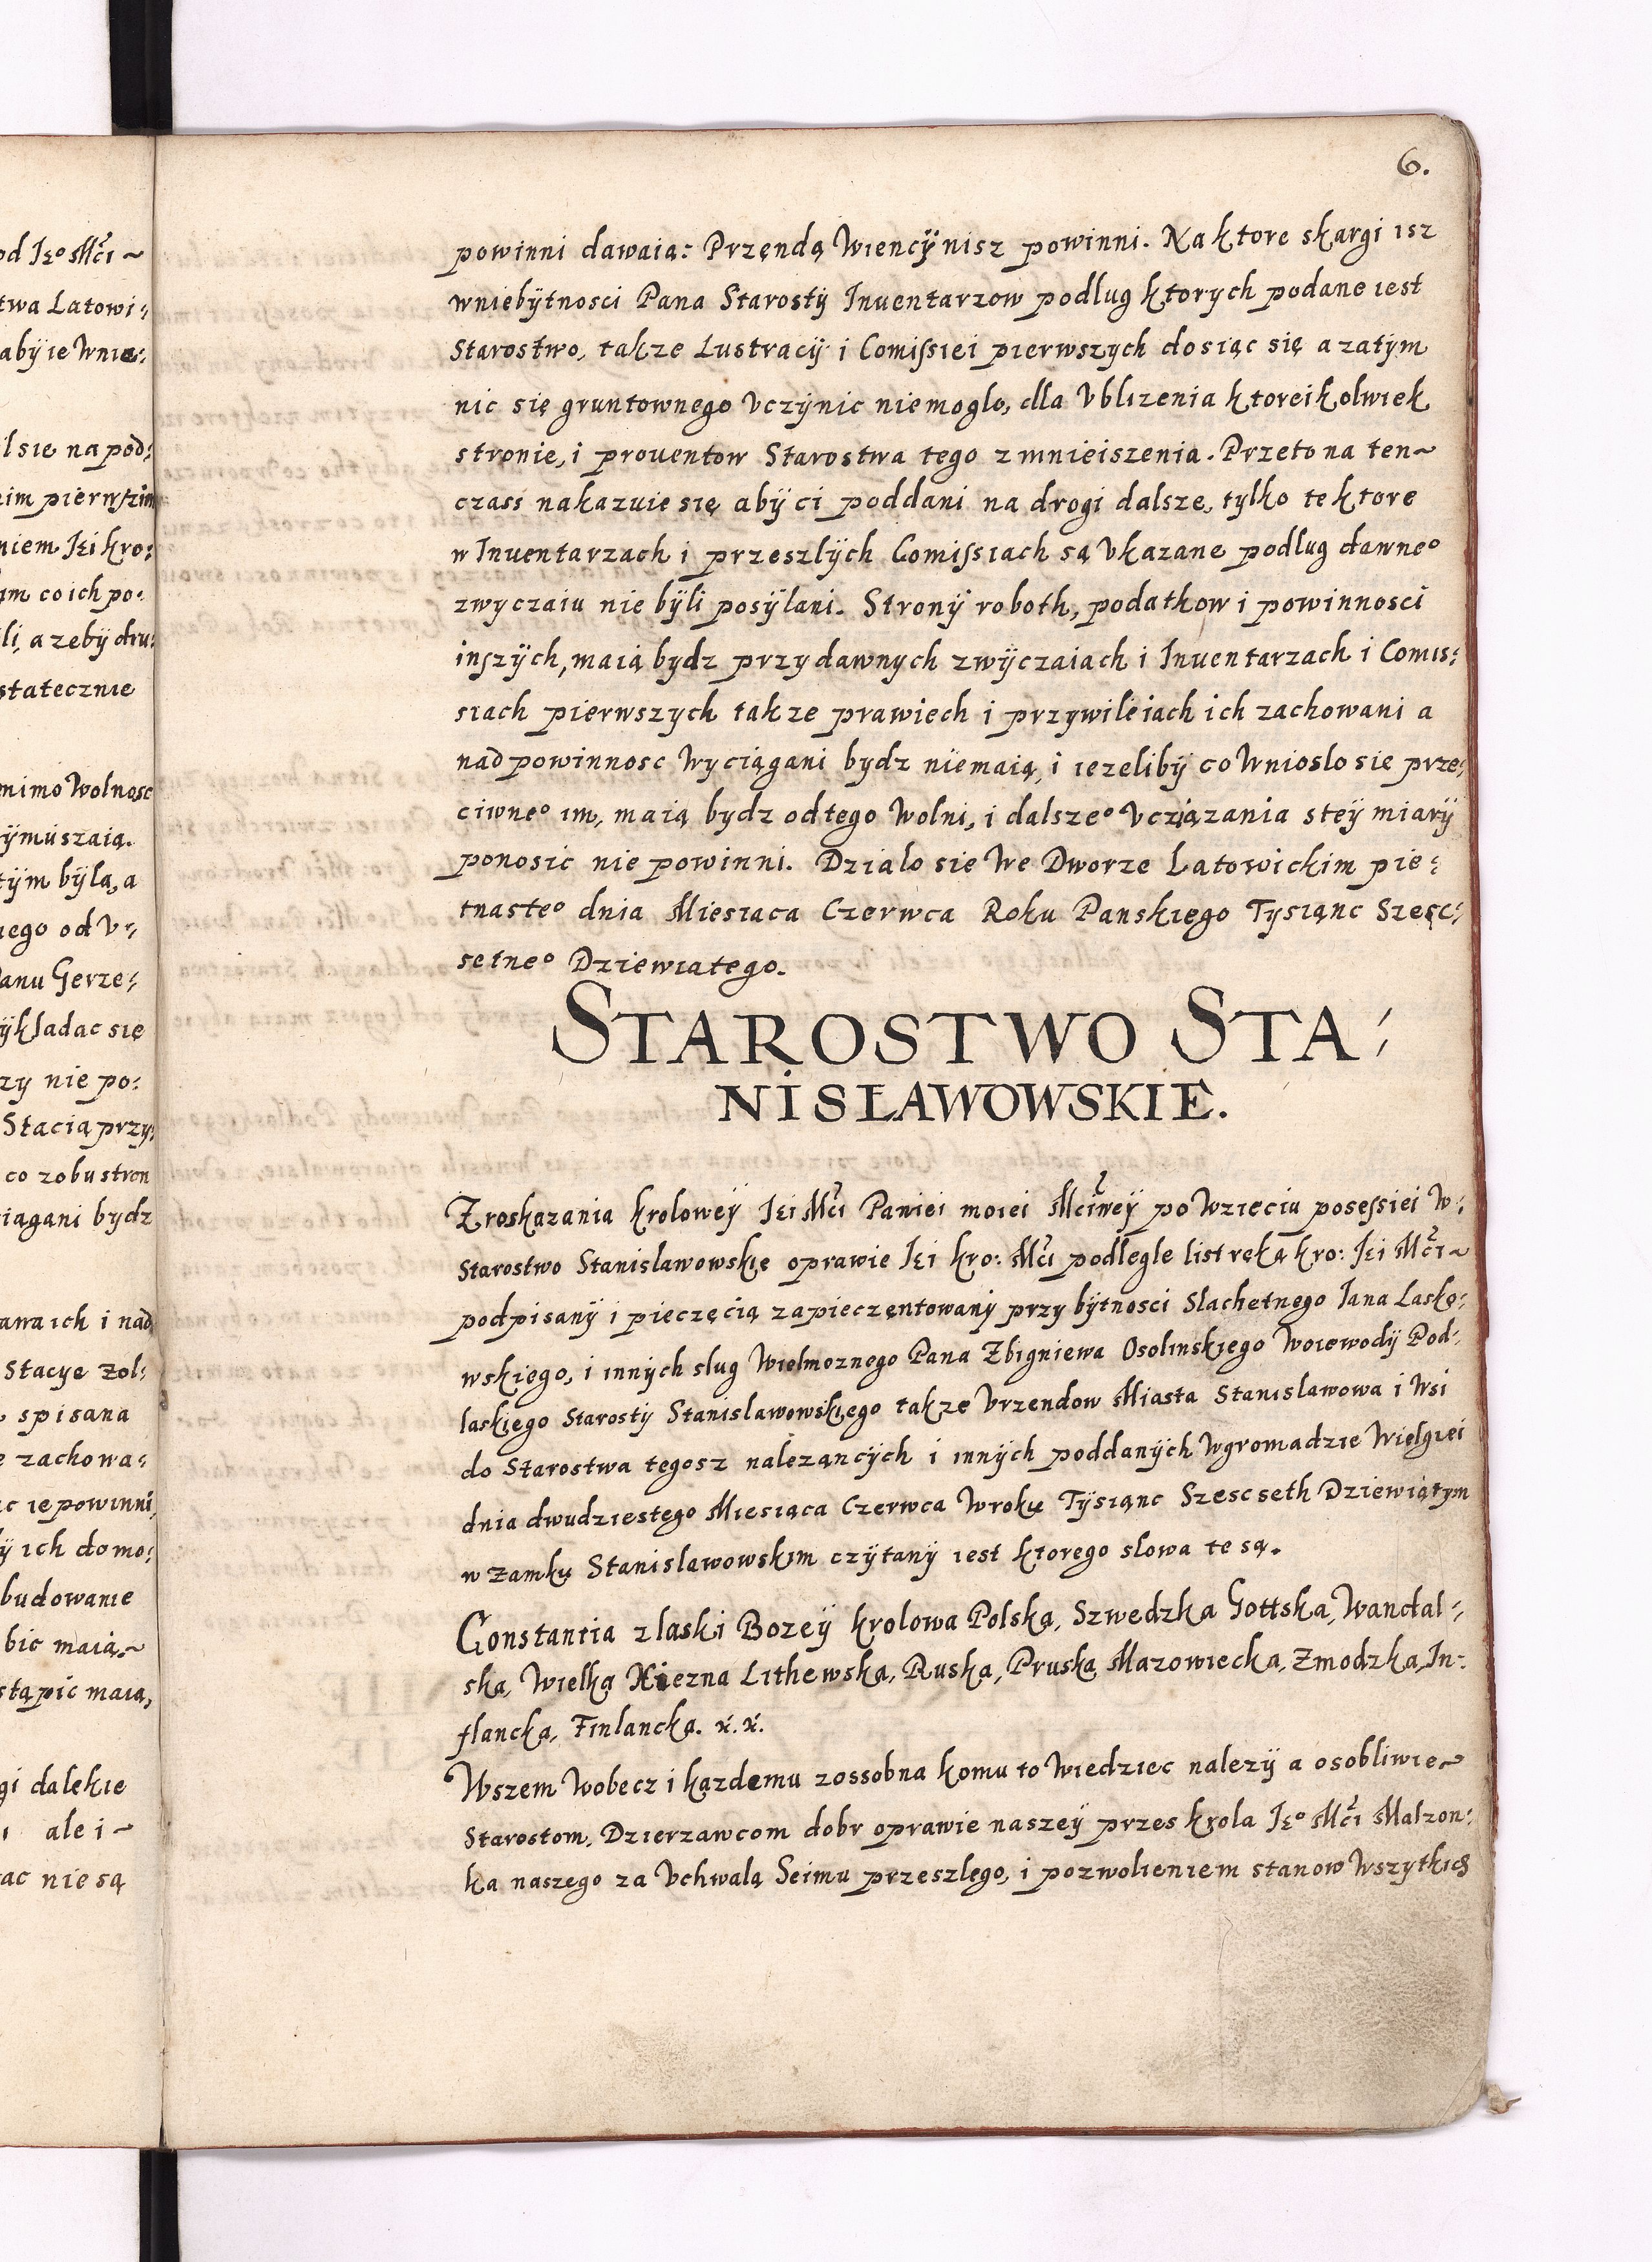 6.
powinni dawaia: Przędą Wiencÿ nisz powinni. Na ktore skargi isz
wniebÿtnosci Pana Starostÿ Inuentarzow podlug ktorych podane iest
Starostwo, takze Lustracÿ i Comissiei pierwszych dosiąc się a zatÿm
nic się gruntownego vczÿnic niemoglo, dla Vblizenia ktoreikolwiek
stronie, i prouentow Starostwa tego zmnieiszenia. Przeto na ten~
czass nakazuie się abÿ ci poddani na drogi dalsze, tylko te ktore
w Inuentarzach i przeszlÿch Comissiach są Vkazane podlug dawne°
zwyczaiu nie bÿli posÿlani. Stronÿ roboth, podatkow i powinnosci
inszÿch, maią bydz przy dawnych zwÿczaiach i Inuentarzach i Comis:
siach pierwszych takze prawiech i przywileiach ich zachowani a
nad powinnosc Wyciągani bydz niemaią, i iezelibÿ co Wnioslo sie prze:
ciwne° im, maią bydz od tego Wolni, i dalsze° Vciązania steÿ miarÿ
ponosic nie powinni. Dzialo sie We Dworze Latowickim pie:
tnaste° dnia Miesiaca Czerwca Roku Panskiego Tysiąnc Szesc:
setne° Dziewiatego.
STAROSTWO STA:
NISŁAWOWSKIE.
Z roskazania krolowey Jei Mci Paniei moiei Mciwey po Wzięciu posessiei W:
Starostwo Stanislawowskie oprawie Jei kro: Mci podlegle list ręką kro: Jei Mci~
podpisanÿ i pieczęcią zapieczętowanÿ przy bÿtnosci Slachetnego Jana Lasko:
wskiego, i innÿch slug Wielmoznego Pana Zbigniewa Osolinskiego Woiewodÿ Pod:
laskiego Starostÿ Stanislawowskiego takze Vrzendow Miasta Stanislawowa i Wsi
do Starostwa tegosz nalezącÿch i innÿch poddanÿch Wgromadzie Wielgiei
dnia dwudziestego Miesiąca Czerwca Wroku Tÿsiąnc Szescseth Dziewiątym
w Zamku Stanislawowskim czÿtanÿ iest ktorego slowa te są.
Constantia z laski Bozeÿ krolowa Polska, Szwedzka Gottska, Wandal:
ska, Wielka Xiezna Lithewska, Ruska, Pruska, Mazowiecka, Zmodzka, In:
flancka, Finlancka. &. &.
Wszem Wobecz i kazdemu zossobna komu to Wiedziec nalezÿ a osobliwie~
Starostom, Dzierzawcom dobr oprawie naszeÿ przes krola Je° Mci Malzon:
ka naszego za Vchwalą Seimu przeszlego, i pozwolieniem stanow Wszytkich